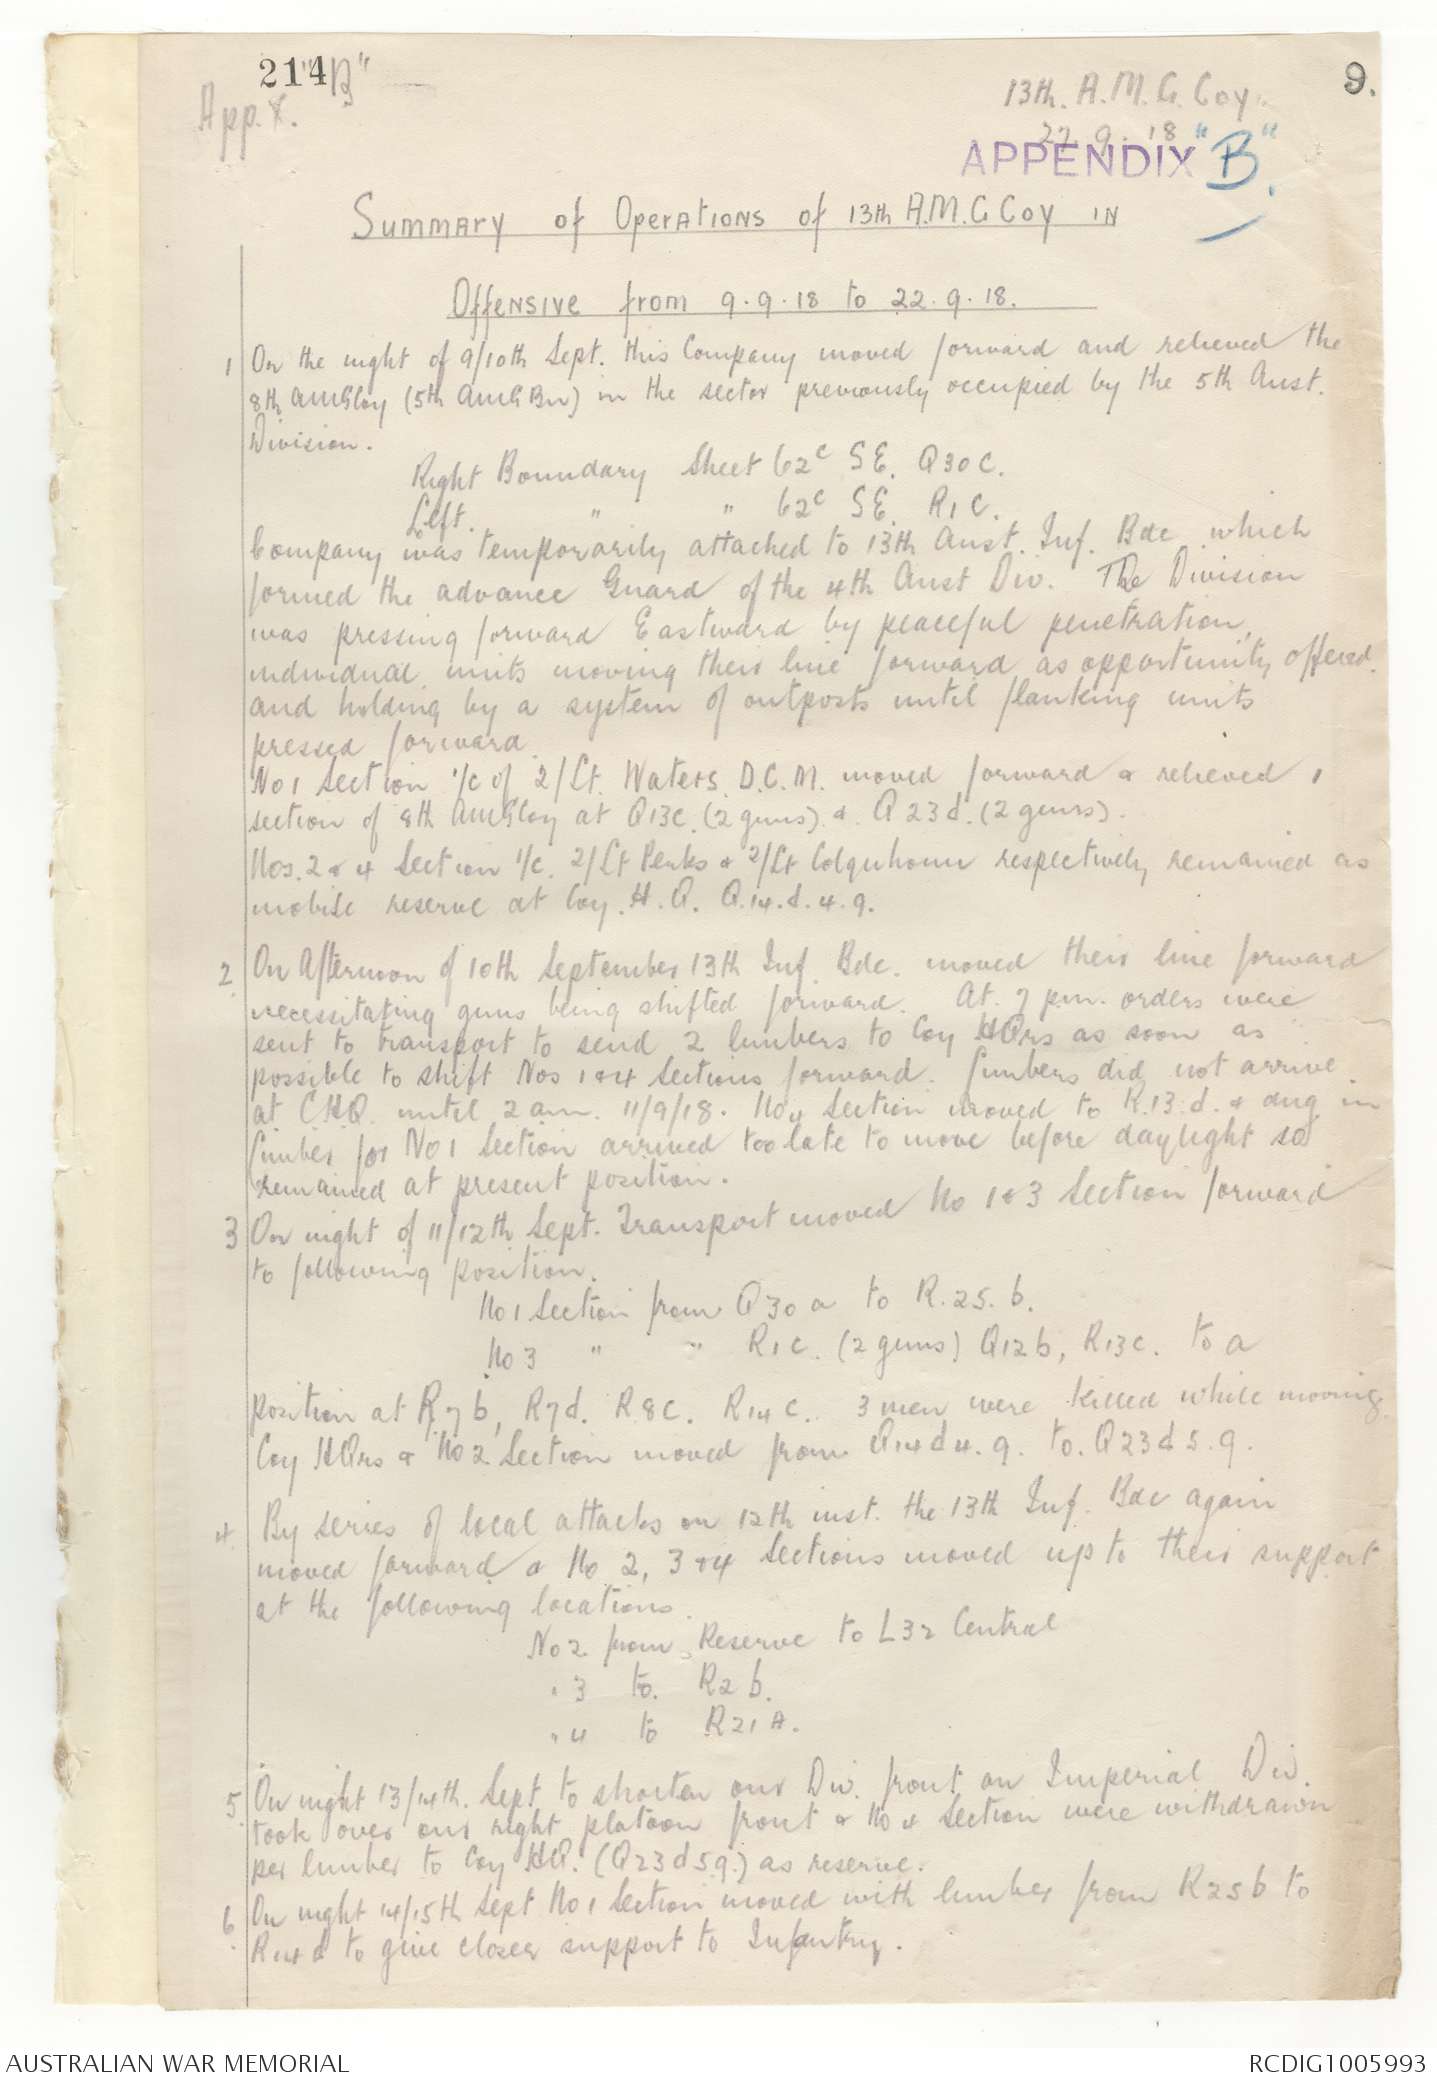 214 "B"
App. X.
13th. A.M.G. Coy.
22.9.18
APPENDIX "B".
9.
Summary of Operations of 13th A.M.G Coy in
Offensive from 9.9.18 to 22.9.18.
1 On the night of 9/10th Sept. this Company moved forward and relieved the
8th AMGCoy (5th AMG Bn) in the sector previously occupied by the 5th Aust.
Division.
Right Boundary Sheet 62c SE. Q30C.
Left. " " 62c SE. R1C.
Company was temporarily attached to 13th Aust. Inf. Bde which
formed the advance Guard of the 4th Aust Div. The Division
was pressing forward Eastward by peaceful penetration,
individual units moving their line forward as opportunity offered
and holding by a system of outposts until flanking units
pressed forward.
No 1 Section i/c of 2/Lt. Waters. D.C.M. moved forward & relieved 1
section of 8th AMGCoy at Q13c. (2 guns). & Q23d. (2 guns).
Nos. 2 & 4 Section i/c. 2/Lt Perks & 2/Lt Colquhoun respectively remained as
mobile reserve at Coy. H.Q. Q.14.d.4.9.
2. On Afternoon of 10th September 13th Inf. Bde. moved their line forward
necessitating guns being shifted forward. At 7 pm. orders were
sent to transport to send 2 limbers to Coy HQrs as soon as
possible to shift Nos 1 & 4 Sections forward. Limbers did not arrive
at CHQ. until 2 am. 11/9/18. No 4 Section moved to R.13.d. & dug in
Limber for No 1 Section arrived too late to move before daylight so
remained at present position.
3 On night of 11/12th Sept. Transport moved No 1 & 3 Section forward
to following position.
No 1 Section from Q30a to R.25.b.
No 3 " " R1c. (2 guns) Q12b, R13c. to a
position at R7b, R7d. R8c. R14c. 3 men were killed while moving.
Coy HQrs & No 2 Section moved from Q14d4.9. to. Q23d5.9.
4. By series of local attacks on 12th inst. the 13th Inf. Bde again
moved forward & No 2, 3 & 4 Sections moved up to their support
at the following locations.
No 2 from Reserve to L32 Central
" 3 to. R2b.
" 4 to R21A.
5. On night 13/14th. Sept. to shorten our Div. front an Imperial Div.
took over our right platoon front & No 4 Section were withdrawn
per limber to Coy HQ. (Q23d5.9.) as reserve.
6. On night 14/15th Sept No 1 Section moved with limber from R25b to
R14d to give closer support to Infantry.
AUSTRALIAN WAR MEMORIAL
RCDIG1005993